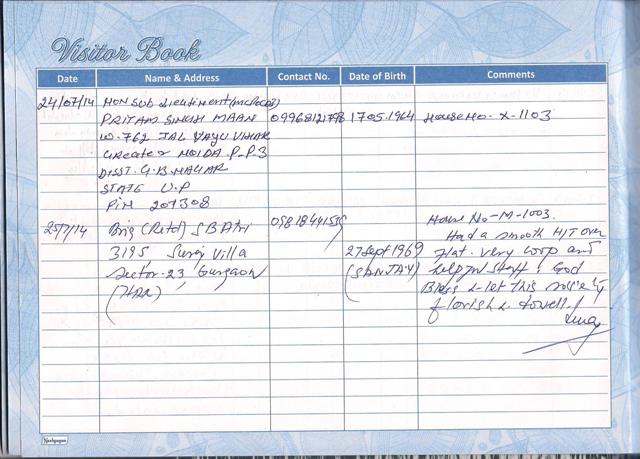 Visitor Book
Date Name & Address Contact No. Date of Birth Comments
24/07/14 HON SUB Lieutinent
PRITAM SINGH MAAN 09968121798 1705.1964 HOUSE No- X-1103
W-762 JAL VAYU VIHAR
Greater NOIDA. P-P-3
DISST. G.B. NAGAR
STATE U.P
PiN 201308
25/7/14 Brig (Retd) S 0981844
House No-M-1003.
Had a smooth H/T over
3195 Suraj Villa 27 Sept 1969 flat. Very Coop and
Sector-23, Gurgaon (SANJAY) helpful staff. God
(HAR) Bless & let this society
florish &
Neelgagan